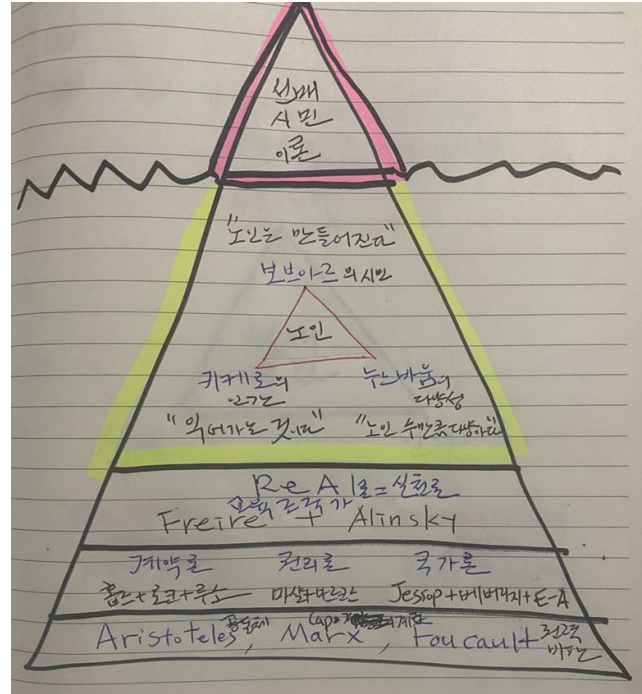 선배
시민
이론
"노인은 만들어진다"
보브아르의 시민
노인
키케로의 누스바움의
인간 다양성
"익어가는 것이다" "노인 수만큼 다양하다"
ReAl론=실천론
조직가
Freire + Alinsky
계약론 권리론 국가론
홉스+로크+루소 마샬+마르크스 Jessop+베버리지+E-A
공동체
Aristoteles, Marx, Foucault 권력
비판